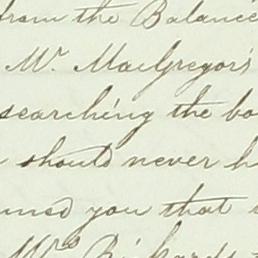 from the Balance
Mr. MacGregor's
searching the bo
should never h
uned you that
Mrs Rickards